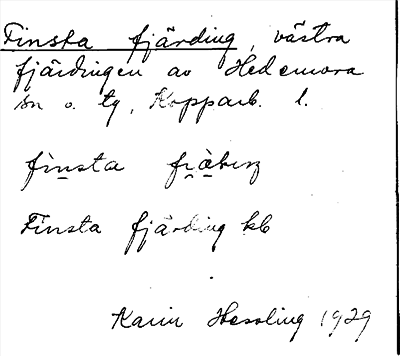 Finsta fjärding, västra
fjärdingen av Hedemora
sn o. tg, Kopparb. l.
finsta
Finsta fjärding kb
Karin Hessling 1929